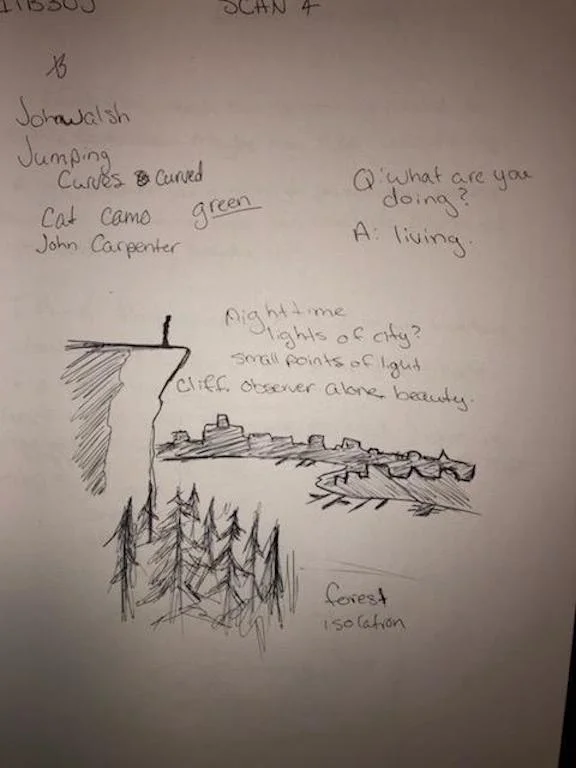 SCAN 4
B
John walsh
Jumping
Curves & Curved
Cat Camo green
John Carpenter
Q: What are you
doing?
A: living.
nighttime
lights of city?
small points of light
Cliff. observer alone beauty.
forest
isolation